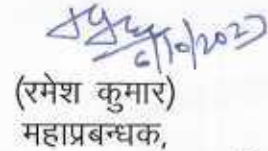 6/10/2023
(रमेश कुमार)
महाप्रबन्धक,